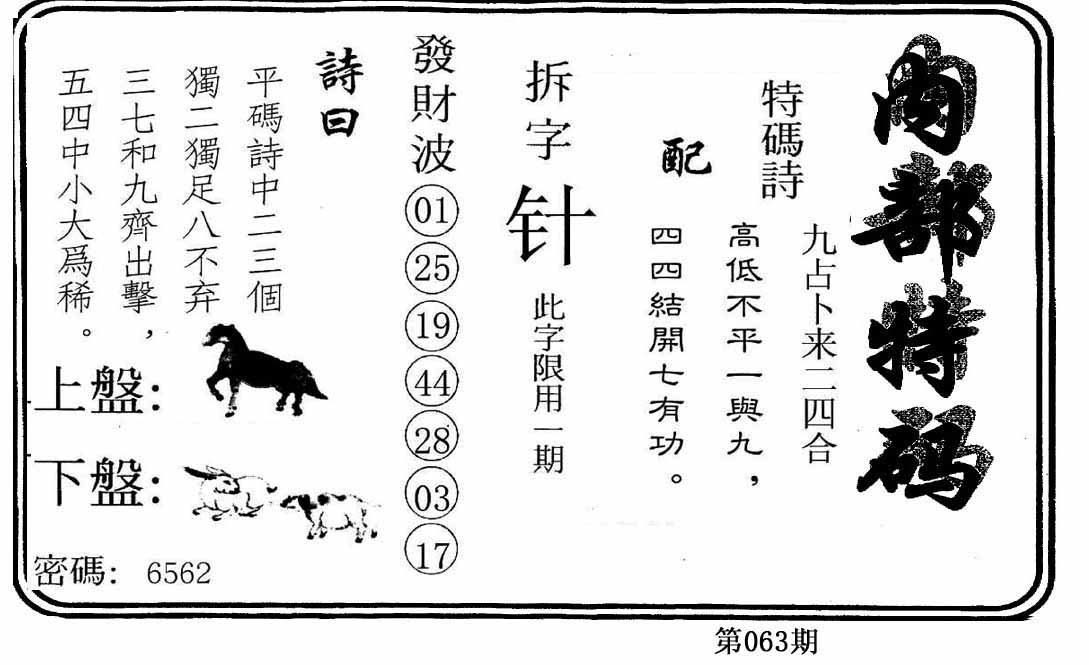 内部特码
特碼詩
九占卜来二四合
高低不平一與九，
配
四四結開七有功。
拆字
针
此字限用一期
發財波
01
25
19
44
28
03
17
詩曰
平碼詩中二三個
獨二獨足八不弃
三七和九齊出擊，
五四中小大爲稀。
上盤：
下盤：
密碼： 6562
第063期